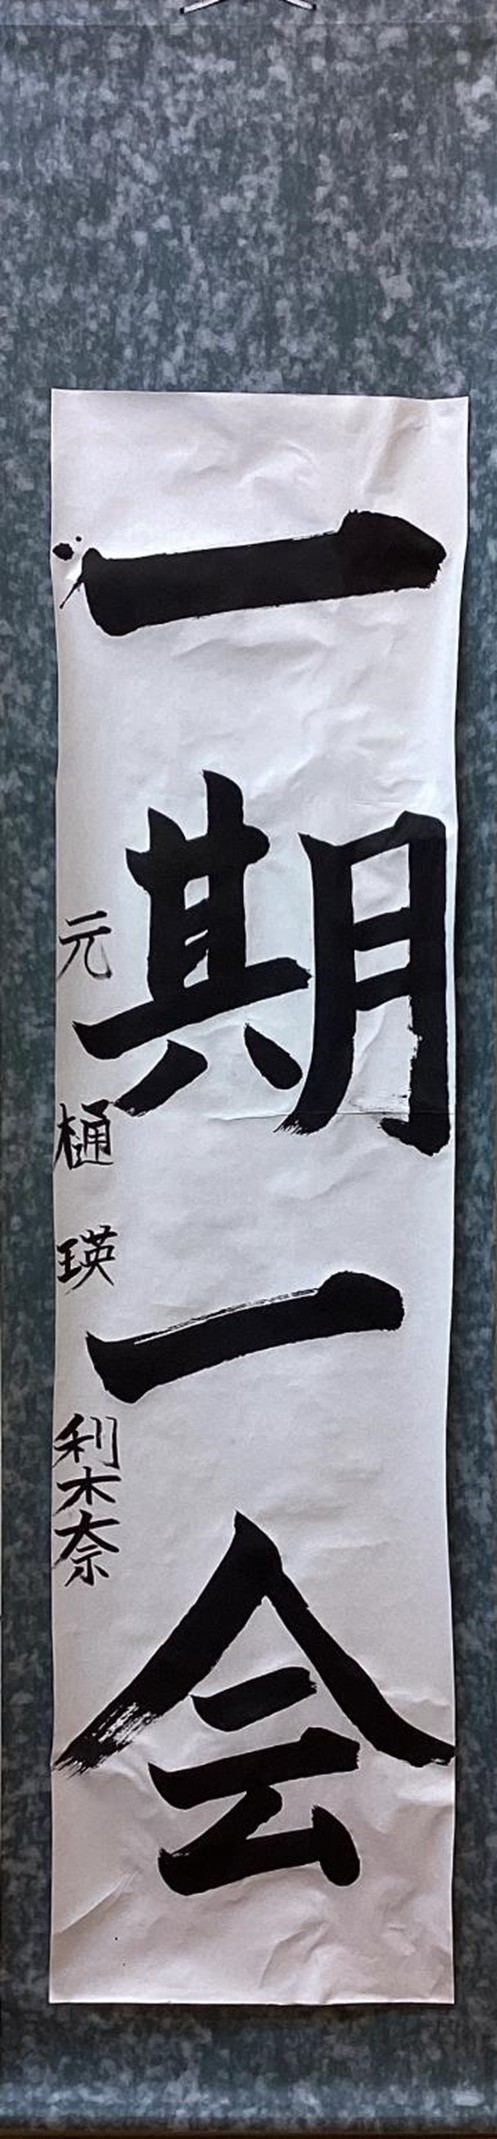 一期一会
元 樋 瑛 利木奈